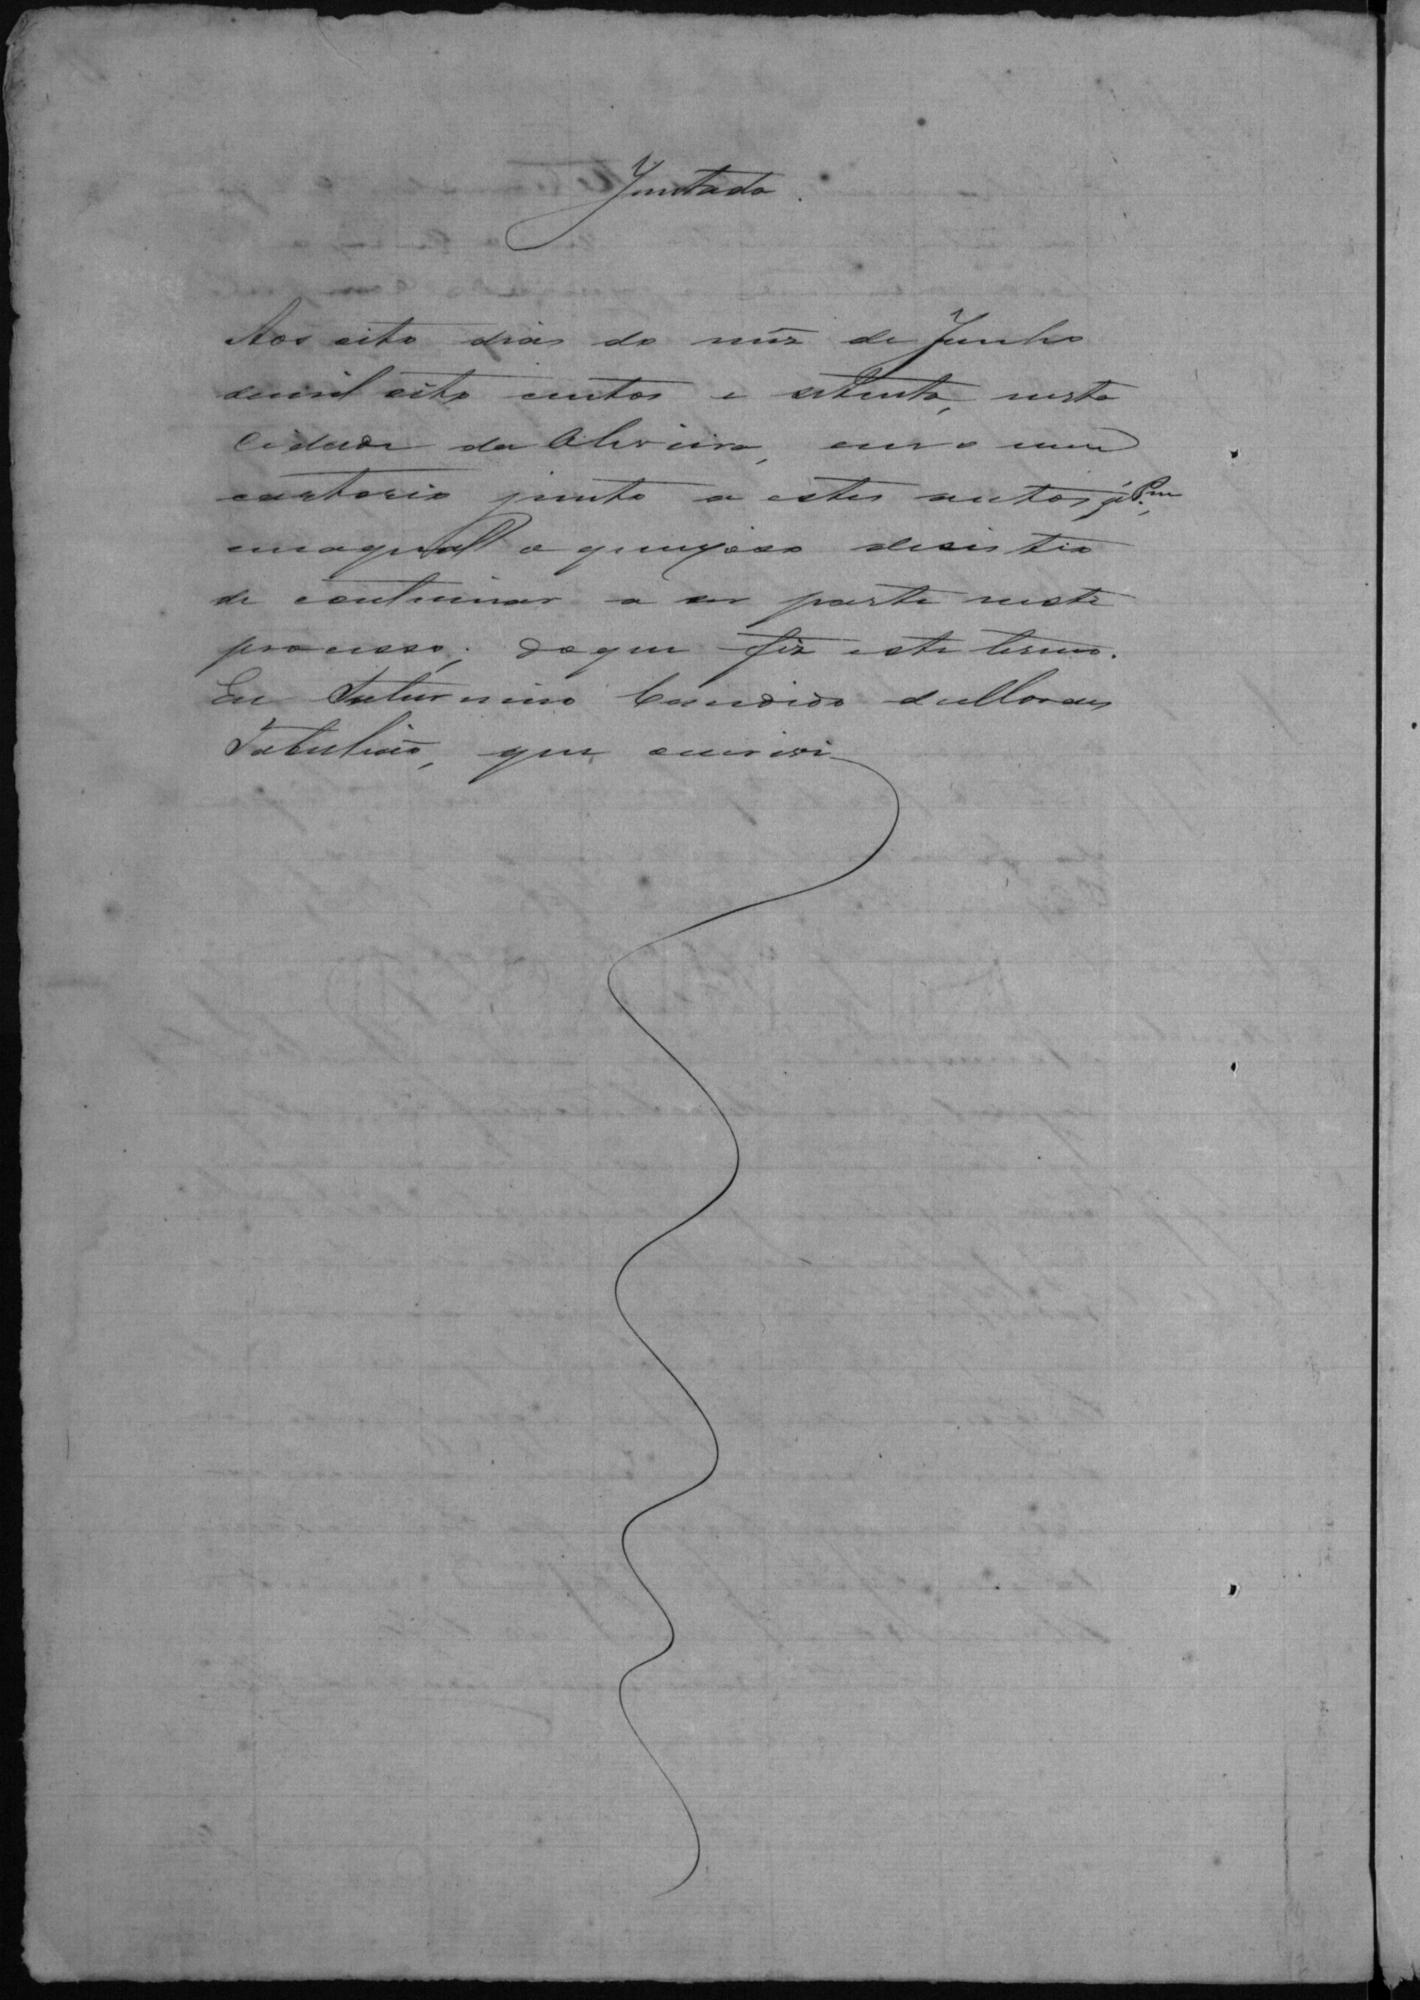 Juntada.
Aos oito dias do mez de Junho
demil oito centos e setenta, nesta
Cidade da Oliveira, em o meu
cartorio junto a estes autos a Pm
emaqual o queixoso desistio
de continuar a ser parte neste
processo; doque fiz este termo.
Eu Saturnino Candido deMoraes
Tabelião, que escrivi